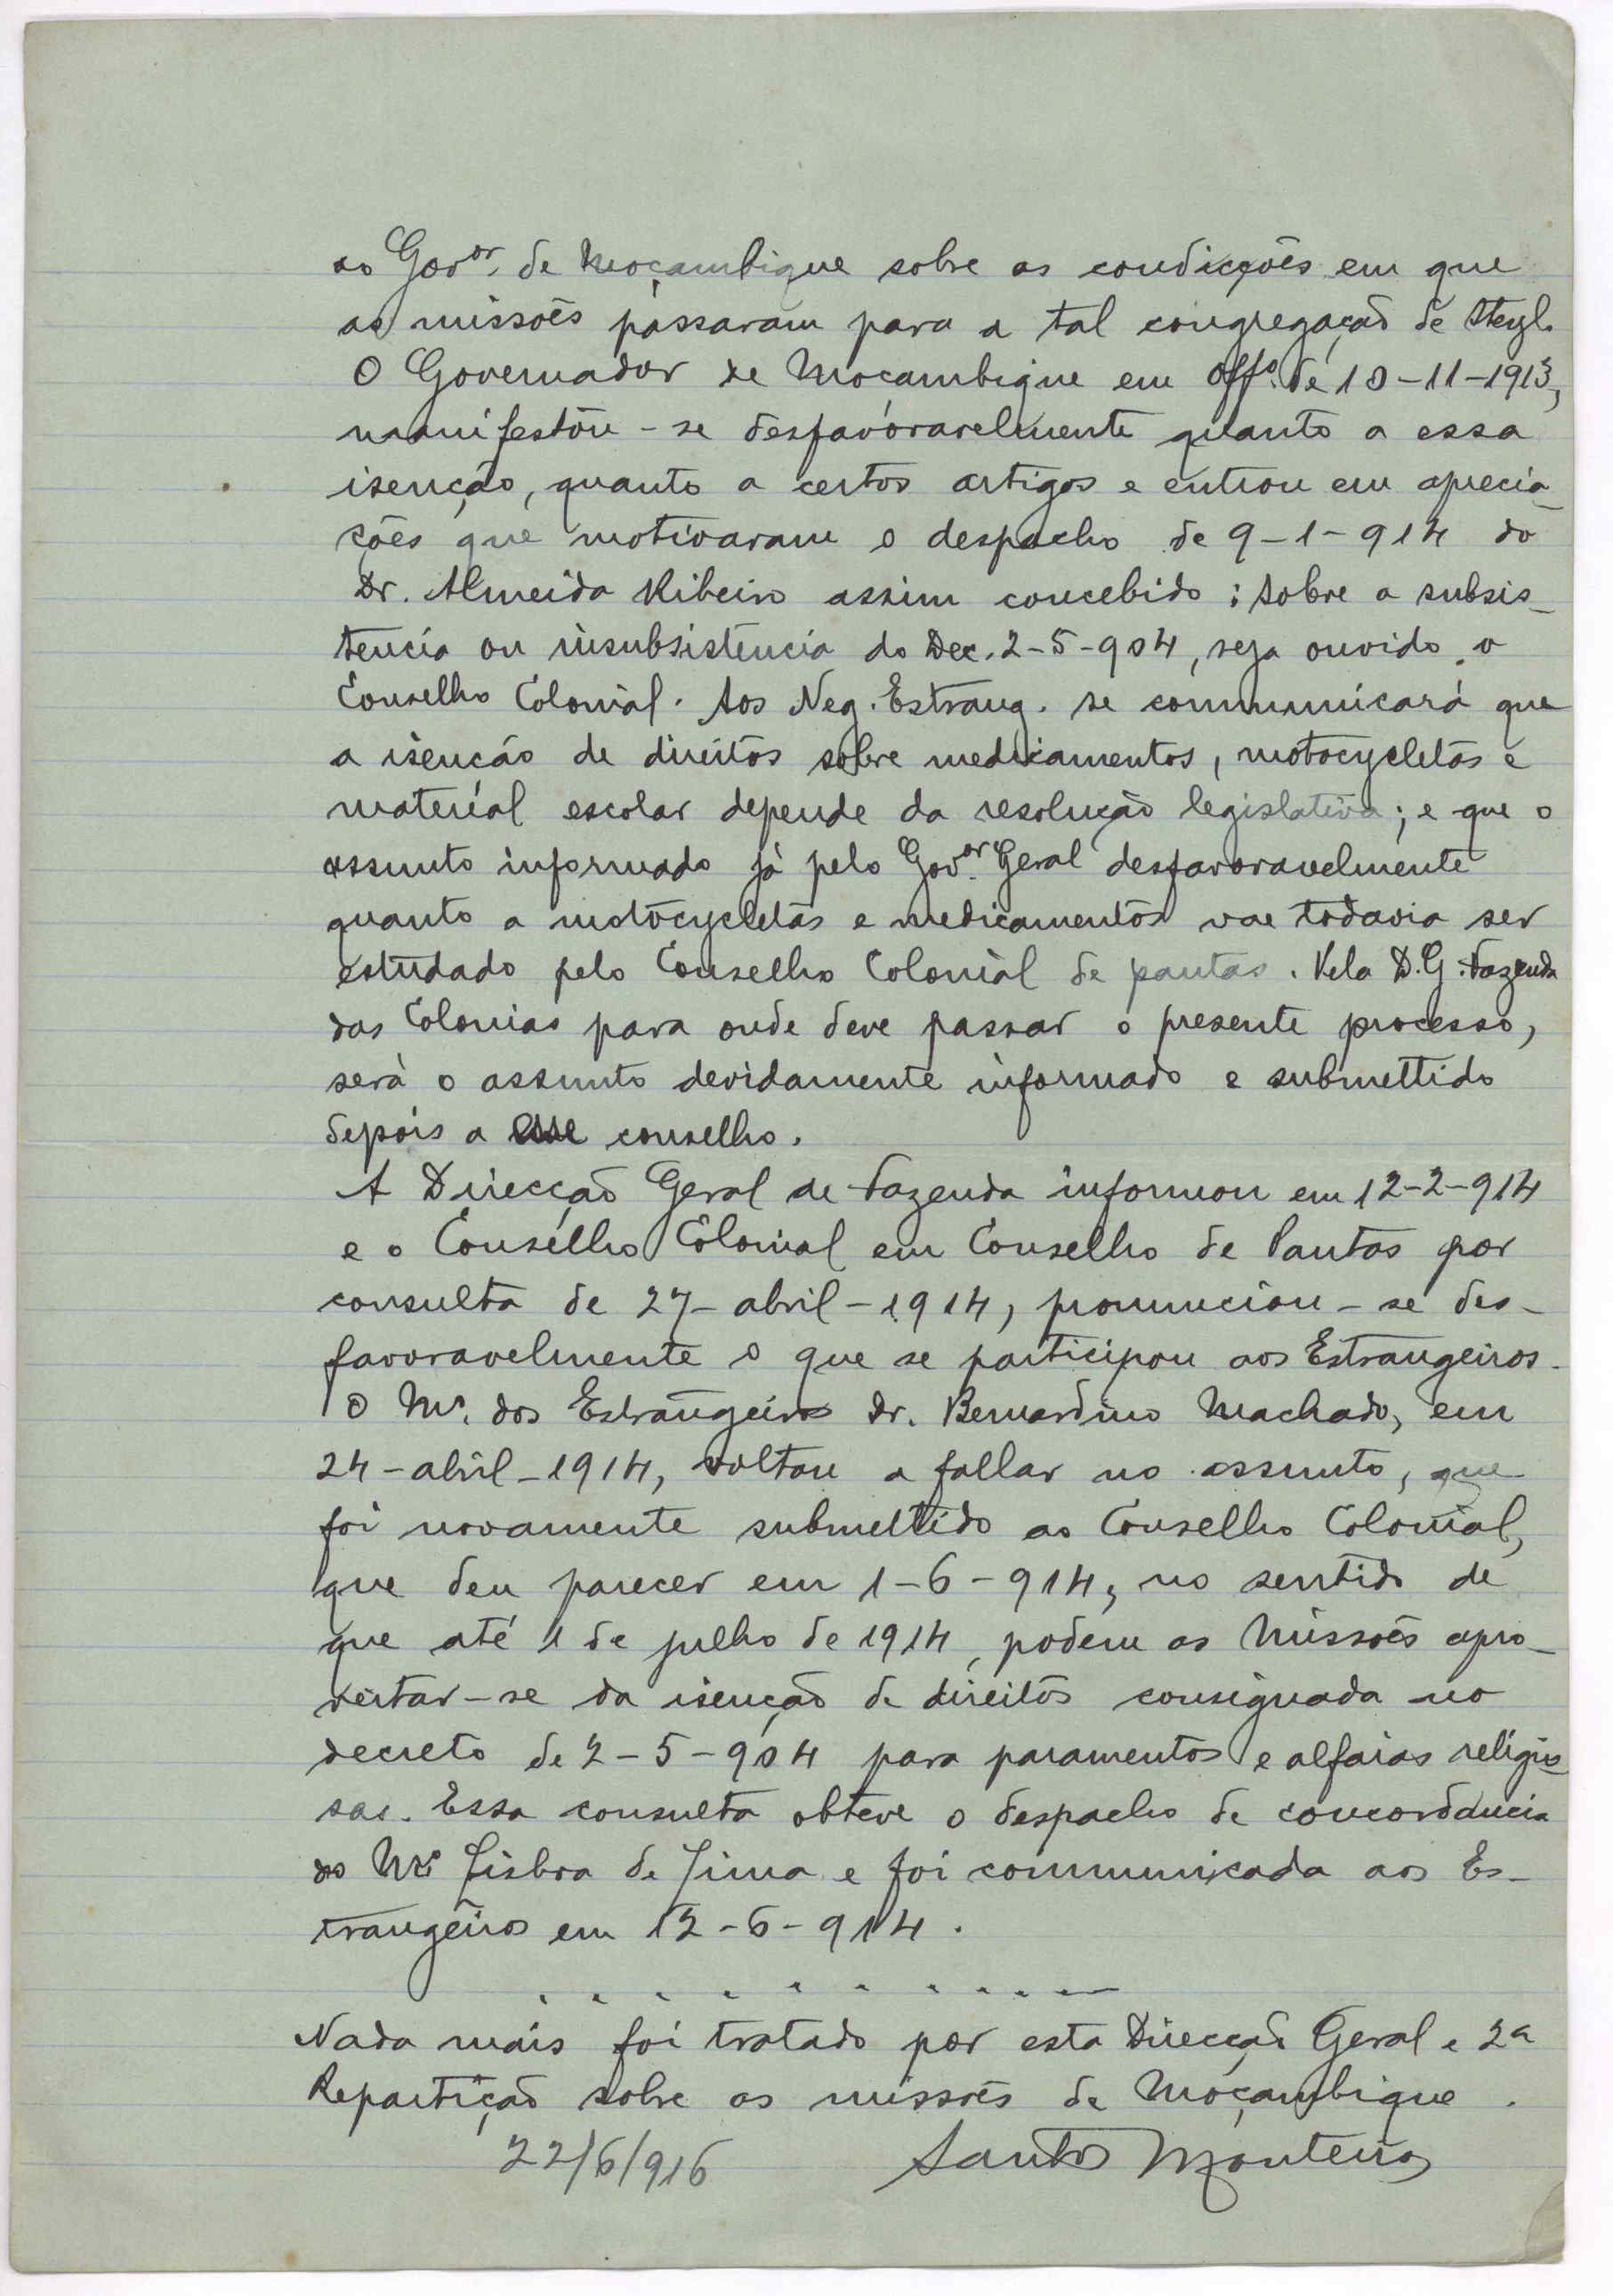 ao Gov.or de Moçambique sobre as condicções em que
as missões passaram para a tal congregação de Steyl.
O Governador de Moçambique em Off.o de 10-11-1913,
manifestou-se desfavoravelmente quanto a essa
isenção, quanto a certos artigos e entrou em aprecia-
ções que motivaram o despacho de 9-1-914 do
Dr. Almeida Ribeiro assim concebido: Sobre a subsis-
tencia ou insubsistencia do Dec. 2-5-904, seja ouvido o
Conselho Colonial. Aos Neg. Estrang. se communicará que
a isenção de direitos sobre medicamentos, motocycletas e
material escolar depende da resolução legislativa; e que o
assunto informado já pelo Gov.or Geral desfavoravelmente
quanto a motocycletas e medicamentos vae todavia ser
estudado pelo Conselho Colonial de pautas. Pela D.G. Fazenda
das Colonias para onde deve passar o presente processo,
será o assunto devidamente informado e submettido
depois a esse conselho.
A Direcção Geral de Fazenda informou em 12-2-914
e o Conselho Colonial em Conselho de Pautas por
consulta de 27-abril-1914, pronunciou-se des-
favoravelmente o que se participou aos Estrangeiros.
O M.o dos Estrangeiros Dr. Bernardino Machado, em
24-abril-1914, voltou a fallar no assunto, que
foi novamente submettido ao Conselho Colonial,
que deu parecer em 1-6-914, no sentido de
que até 1 de julho de 1914, podem as Missões apro-
veitar-se da isenção de direitos consignada no
decreto de 2-5-904 para paramentos e alfaias religio-
sas. Essa consulta obteve o despacho de concordancia
do M.o Lisboa de Lima e foi communicada aos Es-
trangeiros em 12-6-914.
. . . . . . . . . . .
Nada mais foi tratado por esta Direcção Geral e 2a
Repartição sobre as missões de Moçambique.
22/6/916 Santos Monteiro